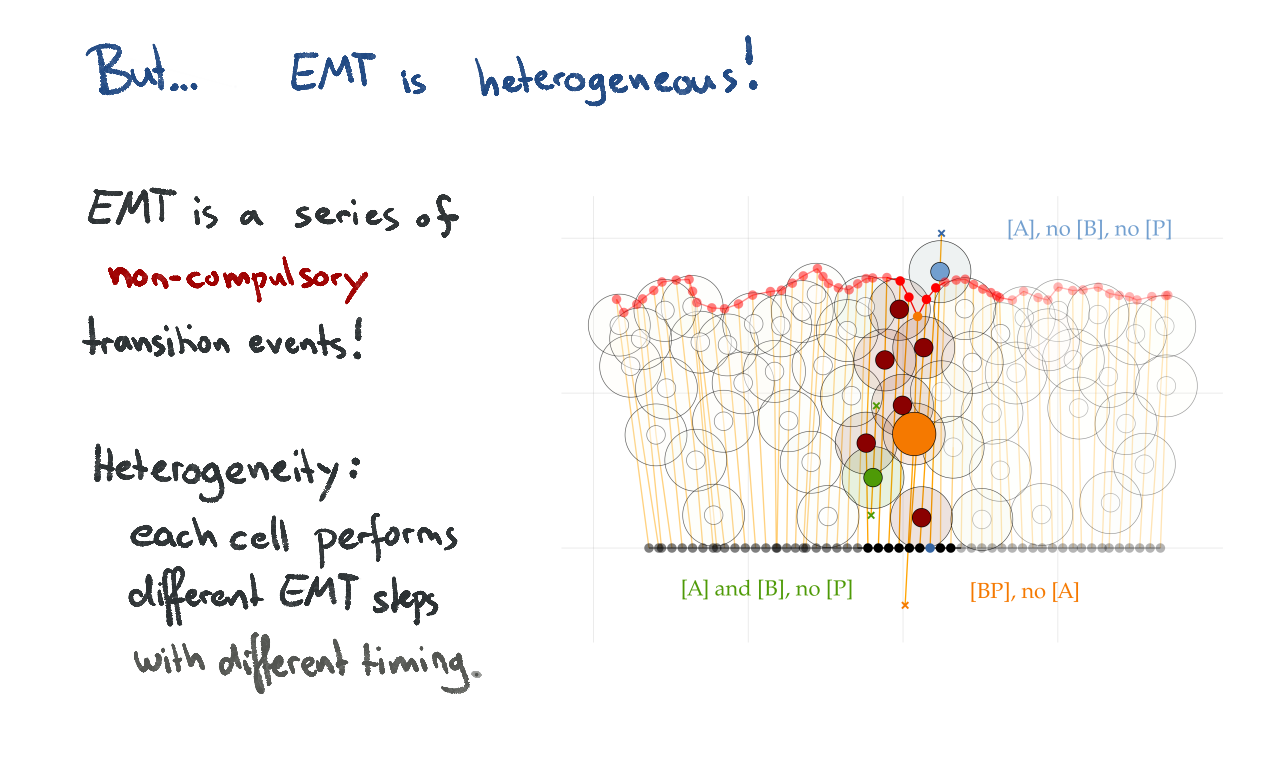 But... EMT is heterogeneous!
EMT is a series of
non-compulsory
transition events!
Heterogeneity:
each cell performs
different EMT steps
with different timing.
[A], no [B], no [P]
[A] and [B], no [P]
[BP], no [A]